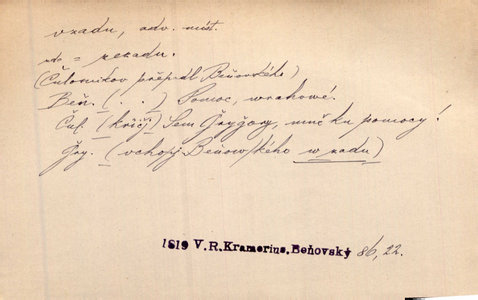 vzadu, adv. míst.
zde = zezadu.
(Čulosnikov přepadl Beňovského)
Beň. ( . . ) Pomoc, wrahowé.
Čul. (křičj) Sem Gryžorg, mně ku pomocy!
Gry. (vchopj Beňowſkého w zadu)
1819 V.R.Kramerius.Beňovský 86, 22.